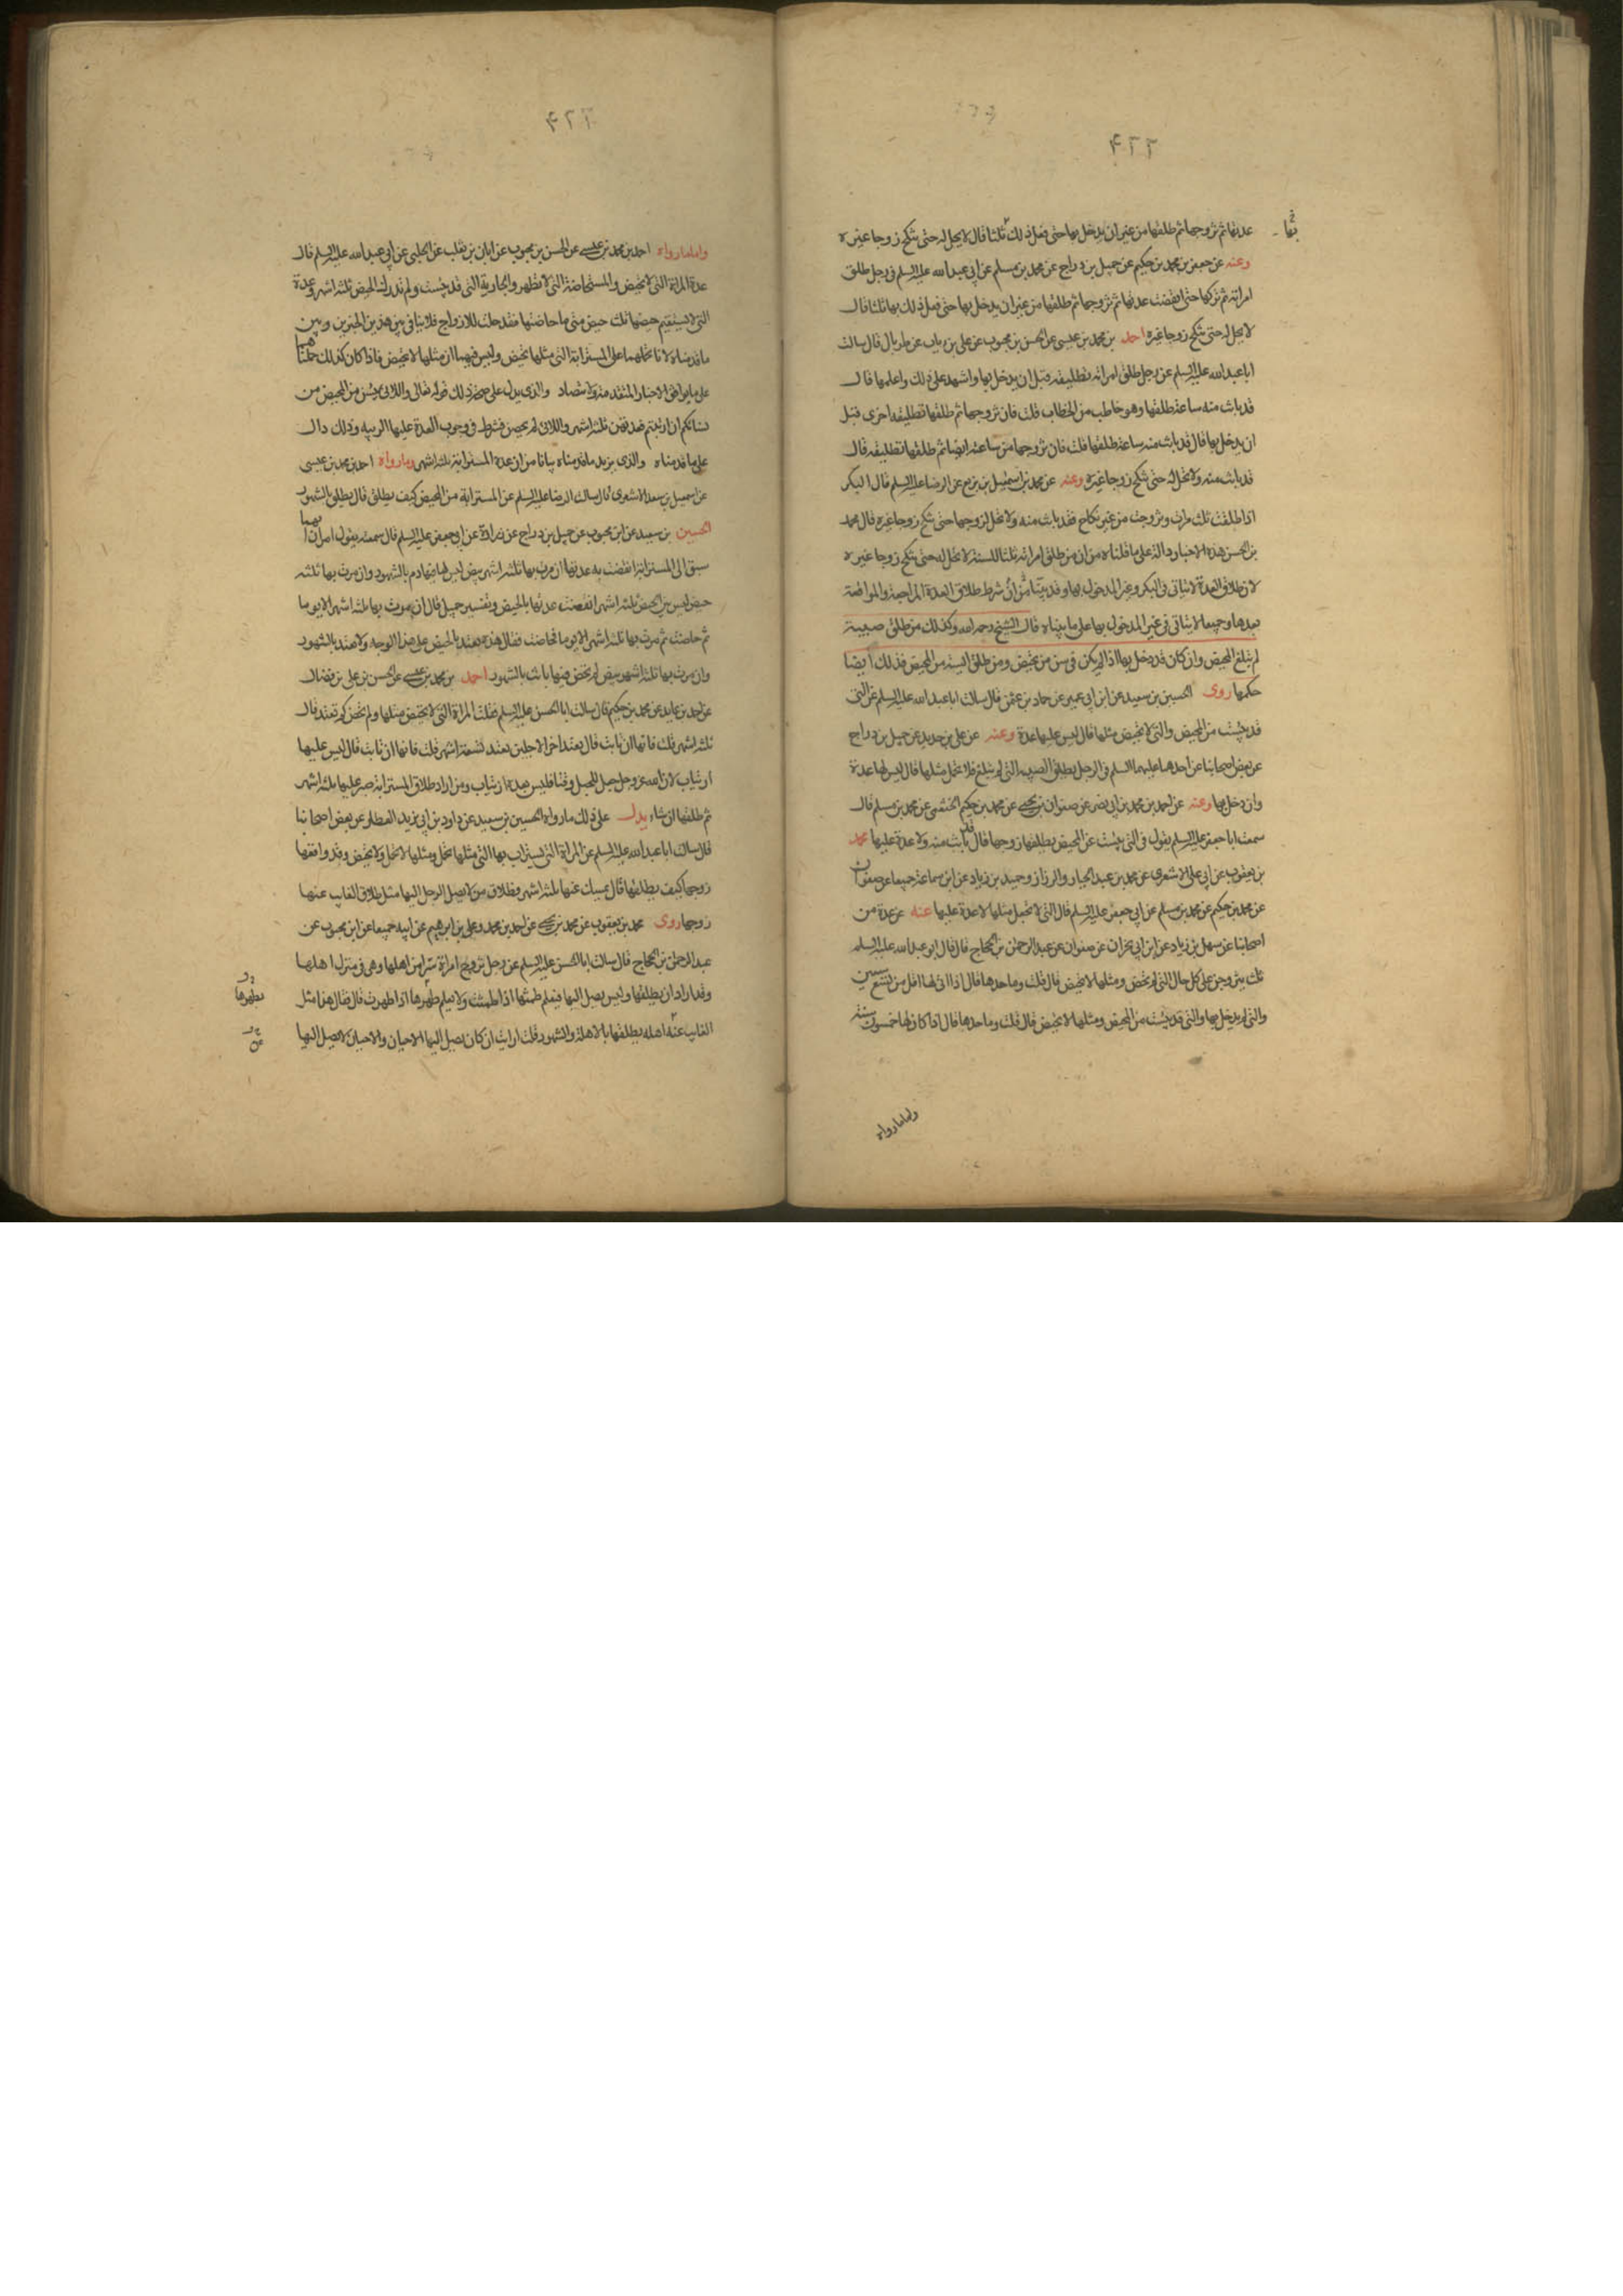 ۴۲۲
عدتها ثم تزوجها ثم طلقها من غير ان يدخل بها حتى فعل ذلك ثلثا قال لا يحل له حتى تنكح زوجا غيره
وعنه عن جعفر بن محمد بن حكيم عن جميل بن دراج عن محمد بن مسلم عن ابي عبد الله عليه السلم في رجل طلق
امراته ثم تركها حتى انقضت عدتها ثم تزوجها ثم طلقها من غير ان يدخل بها حتى فعل ذلك بها ثلثا قال
لا يحل له حتى تنكح زوجا غيره احمد بن محمد بن عيسى عن الحسن بن محبوب عن علي بن رياب عن طربال قال سالت
ابا عبد الله عليه السلم عن رجل طلق امراته تطليقه قبل ان يدخل بها واشهد على ذلك واعلمها قال
قد بانت منه ساعة طلقها وهو خاطب من الخطاب قلت فان تزوجها ثم طلقها تطليقه اخرى قبل
ان يدخل بها قال قد بانت منه ساعة طلقها قلت فان تزوجها من ساعته ايضا ثم طلقها تطليقه قال
قد بانت منه ولا تحل له حتى تنكح زوجا غيره وعنه عن محمد بن اسمعيل بن بزيع عن الرضا عليه السلم قال البكر
اذا طلقت ثلث مرات وتزوجت من غير نكاح فقد بانت منه ولا تحل لزوجها حتى تنكح زوجا غيره قال محمد
بن الحسن هذه الاخبار دالة على ما قلناه من ان من طلق امراته ثلثا للسنة لا تحل له حتى تنكح زوجا غيره
لان طلاق العدة لا يتاتى في البكر وغير المدخول بها وقد بينا من ان شرط طلاق العدة المراجعة والمواقعة
بعدها وجميعا لا يتاتى في غير المدخول بها على ما بيناه قال الشيخ رحمه الله وكذلك من طلق صبية
لم تبلغ المحيض وان كان قد دخل بها اذا لم يكن في سن من تحيض ومن طلق ايسة من المحيض فذلك ايضا
حكمها روى الحسين بن سعيد عن ابن ابي عمير عن حماد بن عثمن قال سالت ابا عبد الله عليه السلم عن التي
قد يئست من المحيض والتي لا تحيض مثلها قال ليس عليها عدة وعنه عن علي بن حديد عن جميل بن دراج
عن بعض اصحابنا عن احدهما عليهما السلم في الرجل يطلق الصبيه التي لم تبلغ فلا تحمل مثلها قال ليس لها عدة
وان دخل بها وعنه عن احمد بن محمد بن ابي نصر عن صفوان بن يحيى عن محمد بن حكيم الخثعمي عن محمد بن مسلم قال
سمعت ابا جعفر عليه السلم يقول في التي يئست عن المحيض يطلقها زوجها قال قد بانت منه ولا عدة عليها محمد
بن يعقوب عن ابي علي الاشعري عن محمد بن عبد الجبار والرزاز وحميد بن زياد عن ابن سماعة جميعا عن صفوان
عن محمد بن حكيم عن محمد بن مسلم عن ابي جعفر عليه السلم قال التي لا تحبل مثلها لا عدة عليها عنه عن عدة من
اصحابنا عن سهل بن زياد عن ابن ابي نجران عن صفوان عن عبد الرحمن بن الحجاج قال قال ابو عبد الله عليه السلم
ثلث يتزوجن على كل حال التي لم تحض ومثلها لا تحيض قال قلت وما حدها قال اذا اتى لها اقل من تسع سنين
والتي لم يدخل بها والتي قد يئست من المحيض ومثلها لا تحيض قال قلت وما حدها قال اذا كان لها خمسون سنة
واما ما رواه
۴۲۳
واما ما رواه احمد بن محمد بن عيسى عن الحسن بن محبوب عن ابان بن تغلب عن الحلبي عن ابي عبد الله عليه السلم قال
عدة المراة التي لا تحيض والمستحاضة التي لا تطهر والجارية التي قد يئست ولم تدرك الحيض ثلثة اشهر وعدة
التي لا يستقيم حيضها ثلث حيض متى ما حاضتها فقد حلت للازواج فلا ينافي بين هذين الخبرين وبين
ما قدمناه لانا نحملهما على المسترابة التي مثلها تحيض وليس فيهما ان مثلها لا تحيض فاذا كان كذلك حملناهما
على ما يوافق الاخبار المتقدمة ولا تتضاد والذي يدل على صحة ذلك قوله تعالى واللائي يئسن من المحيض من
نسائكم ان ارتبتم فعدتهن ثلثة اشهر واللائي لم يحضن فشرط في وجوب العدة عليها الريبه وذلك دال
على ما قدمناه والذي يزيد ما قدمناه بيانا من ان عدة المسترابة ثلثة اشهر ما رواه احمد بن محمد بن عيسى
عن اسمعيل بن سعد الاشعري قال سالت الرضا عليه السلم عن المسترابة من المحيض كيف يطلق قال يطلق بالشهور
الحسين بن سعيد عن ابن محبوب عن جميل بن دراج عن زرارة عن ابي جعفر عليه السلم قال سمعته يقول امران ايهما
سبق الى المسترابة انقضت به عدتها ان مرت بها ثلثة اشهر بيض ليس لها فيها دم بالشهور وان مرت بها ثلثه
حيض ليس بين الحيض ثلثة اشهر انقضت عدتها بالحيض وتفسير جميل قال ان مرت بها ثلثة اشهر الا يوما
ثم حاضت ثم مرت بها ثلثة اشهر الا يوما فحاضت فقال هذه تعتد بالحيض على هذا الوجه ولا تعتد بالشهور
وان مرت بها ثلثة اشهر بيض لم تحض فيها بانت بالشهور احمد بن محمد بن عيسى عن الحسن بن علي بن فضال
عن احمد بن عايد عن محمد بن حكيم قال سالت ابا الحسن عليه السلم فقلت المراة التي لا تحيض مثلها ولم تحض كم تعتد قال
ثلثة اشهر قلت فانها ارتابت قال تعتد اخر الاجلين تعتد تسعة اشهر قلت فانها ارتابت قال ليس عليها
ارتياب لان الله عز وجل جعل للحبل وقتا فليس بعده ارتياب ومن اراد طلاق المسترابة صبر عليها ثلثة اشهر
ثم طلقها ان شاء يدل على ذلك ما رواه الحسين بن سعيد عن داود بن ابي يزيد العطار عن بعض اصحابنا
قال سالت ابا عبد الله عليه السلم عن المراة التي يستراب بها التي مثلها تحمل ومثلها لا تحمل ولا تحيض وقد واقعها
زوجها كيف يطلقها قال يمسك عنها ثلثة اشهر وطلاق من لا يصل الرجل اليها مثل طلاق الغايب عنها
زوجها روى محمد بن يعقوب عن محمد بن يحيى عن احمد بن محمد وعلي بن ابرهيم عن ابيه جميعا عن ابن محبوب عن
عبد الرحمن بن الحجاج قال سالت ابا الحسن عليه السلم عن رجل تزوج امراة سرا من اهلها وهي في منزل اهلها
وقد اراد ان يطلقها وليس يصل اليها فيعلم طمثها اذا طمثت ولا يعلم طهرها اذا طهرت قال فقال هذا مثل
بطهرها
الغايب عنه اهله يطلقها بالاهلة والشهور قلت ارايت ان كان يصل اليها الاحيان والاحيان لا يصل اليها
عن